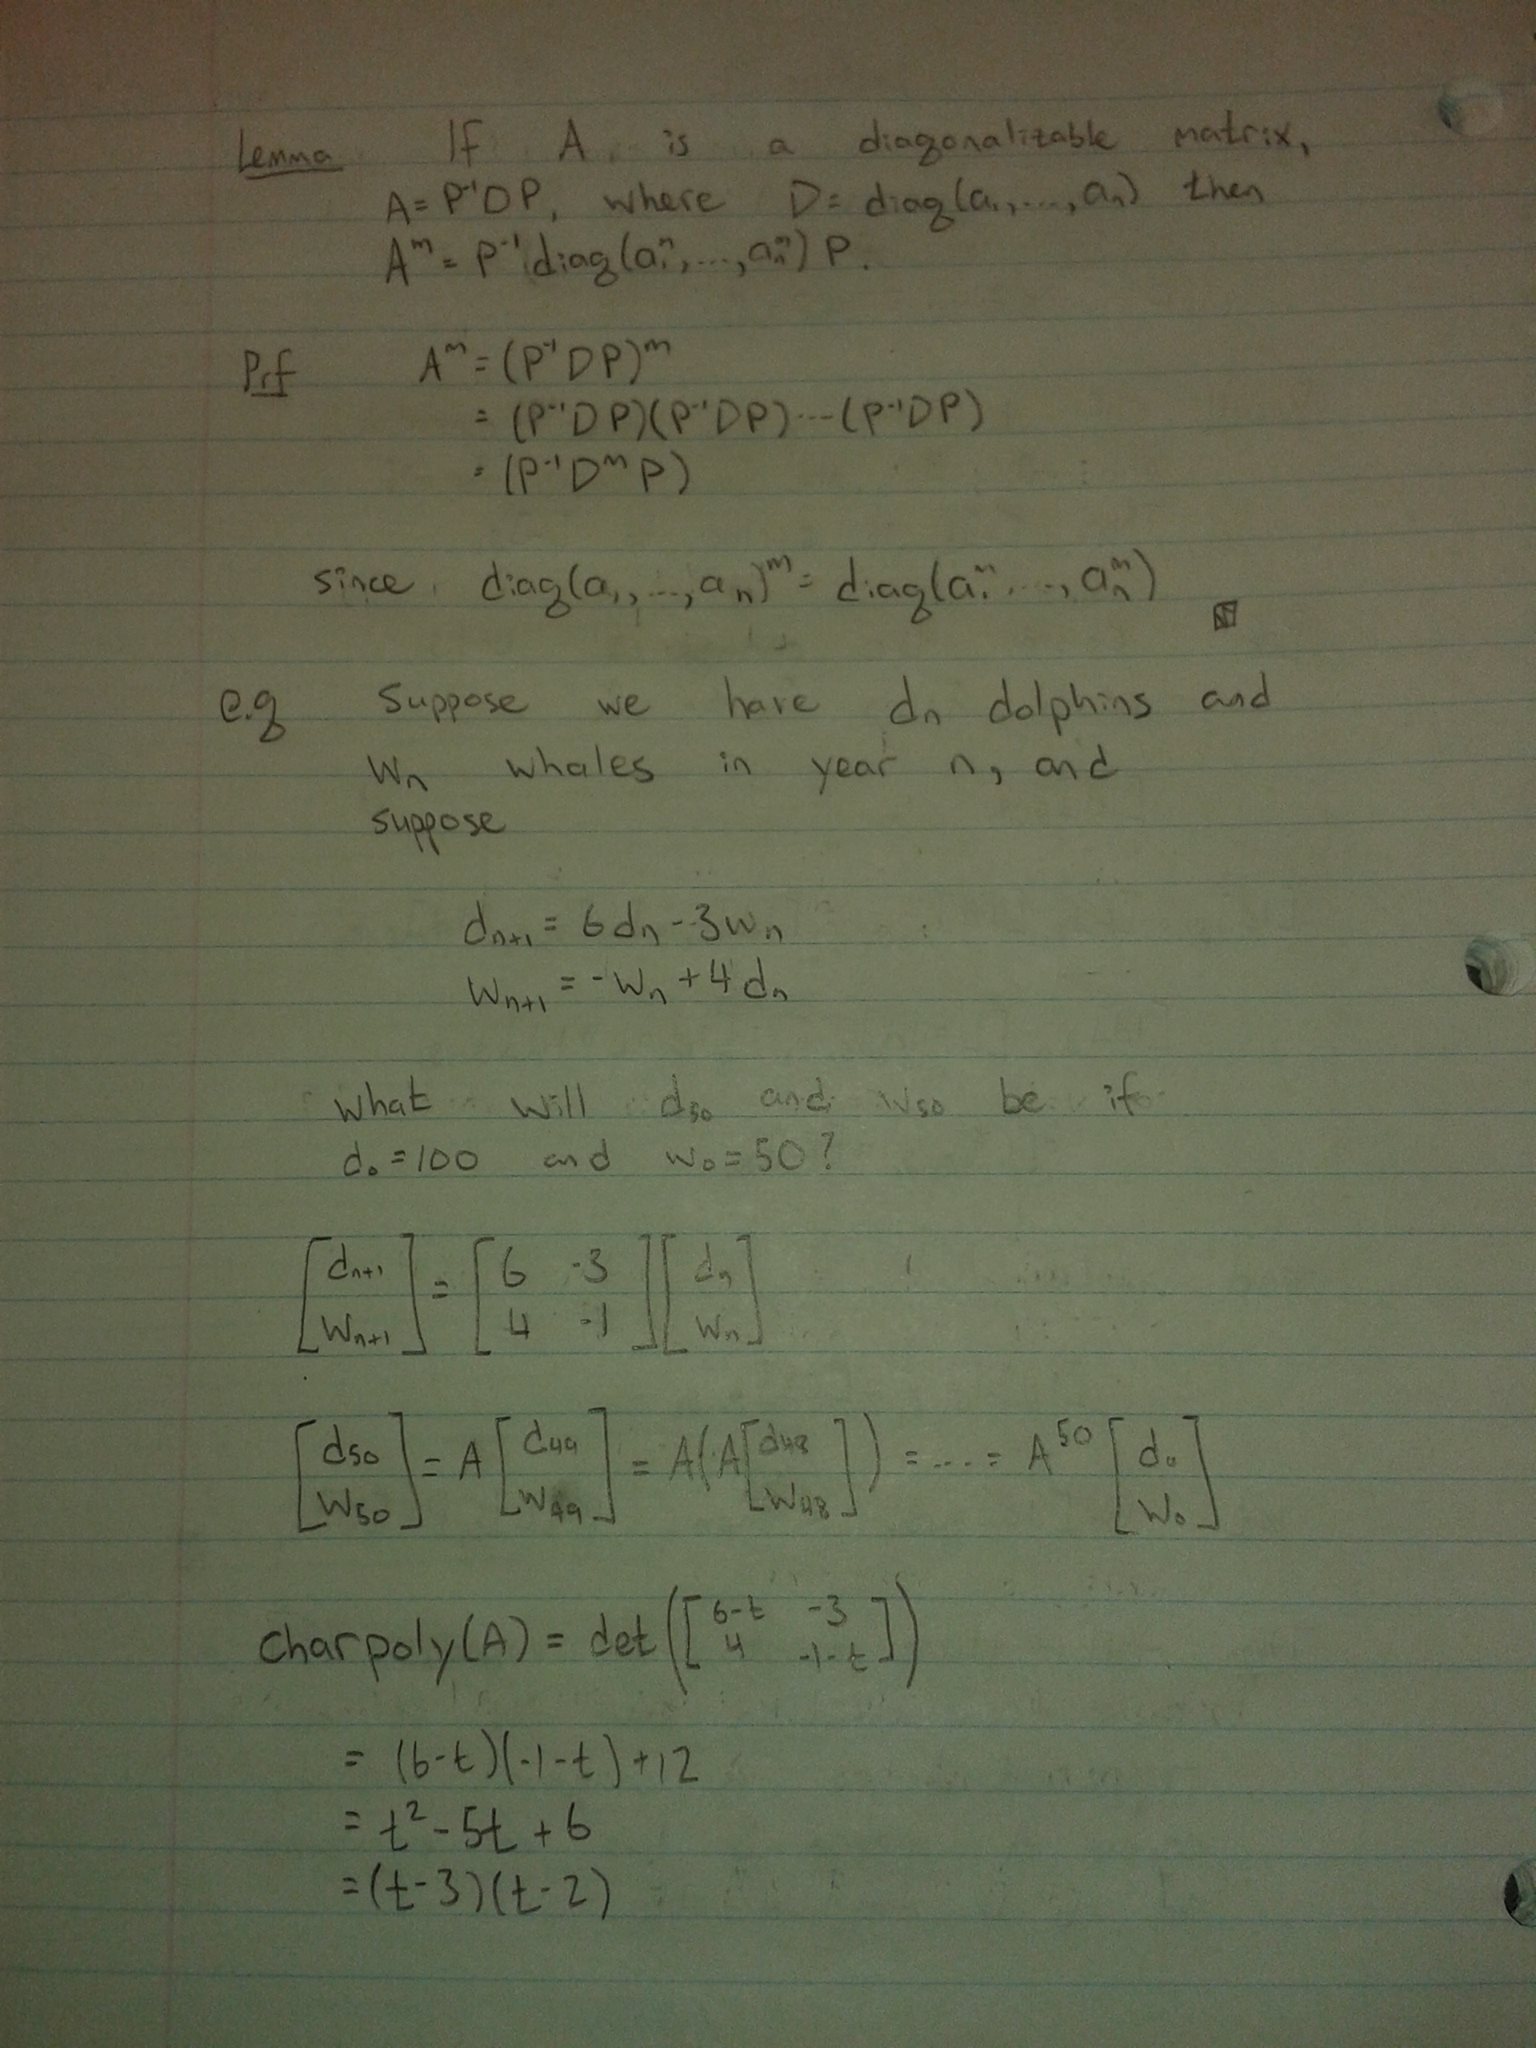 Lemma If A is a diagonalizable matrix,
A = P⁻¹DP, where D = diag(a₁,...,aₙ) then
Aᵐ = P⁻¹diag(a₁ᵐ,...,aₙᵐ)P.
Prf Aᵐ = (P⁻¹DP)ᵐ
= (P⁻¹DP)(P⁻¹DP)...(P⁻¹DP)
= (P⁻¹DᵐP)
since diag(a₁,...,aₙ)ᵐ = diag(a₁ᵐ,...,aₙᵐ)
e.g Suppose we have dₙ dolphins and
wₙ whales in year n, and
suppose
dₙ₊₁ = 6dₙ - 3wₙ
wₙ₊₁ = -wₙ + 4dₙ
what will d₅₀ and w₅₀ be if
d₀ = 100 and w₀ = 50?
[dₙ₊₁; wₙ₊₁] = [6 -3; 4 -1][dₙ; wₙ]
[d₅₀; w₅₀] = A[d₄₉; w₄₉] = A(A[d₄₈; w₄₈]) = ... = A⁵⁰[d₀; w₀]
charpoly(A) = det([6-t -3; 4 -1-t])
= (6-t)(-1-t)+12
= t² - 5t + 6
= (t-3)(t-2)